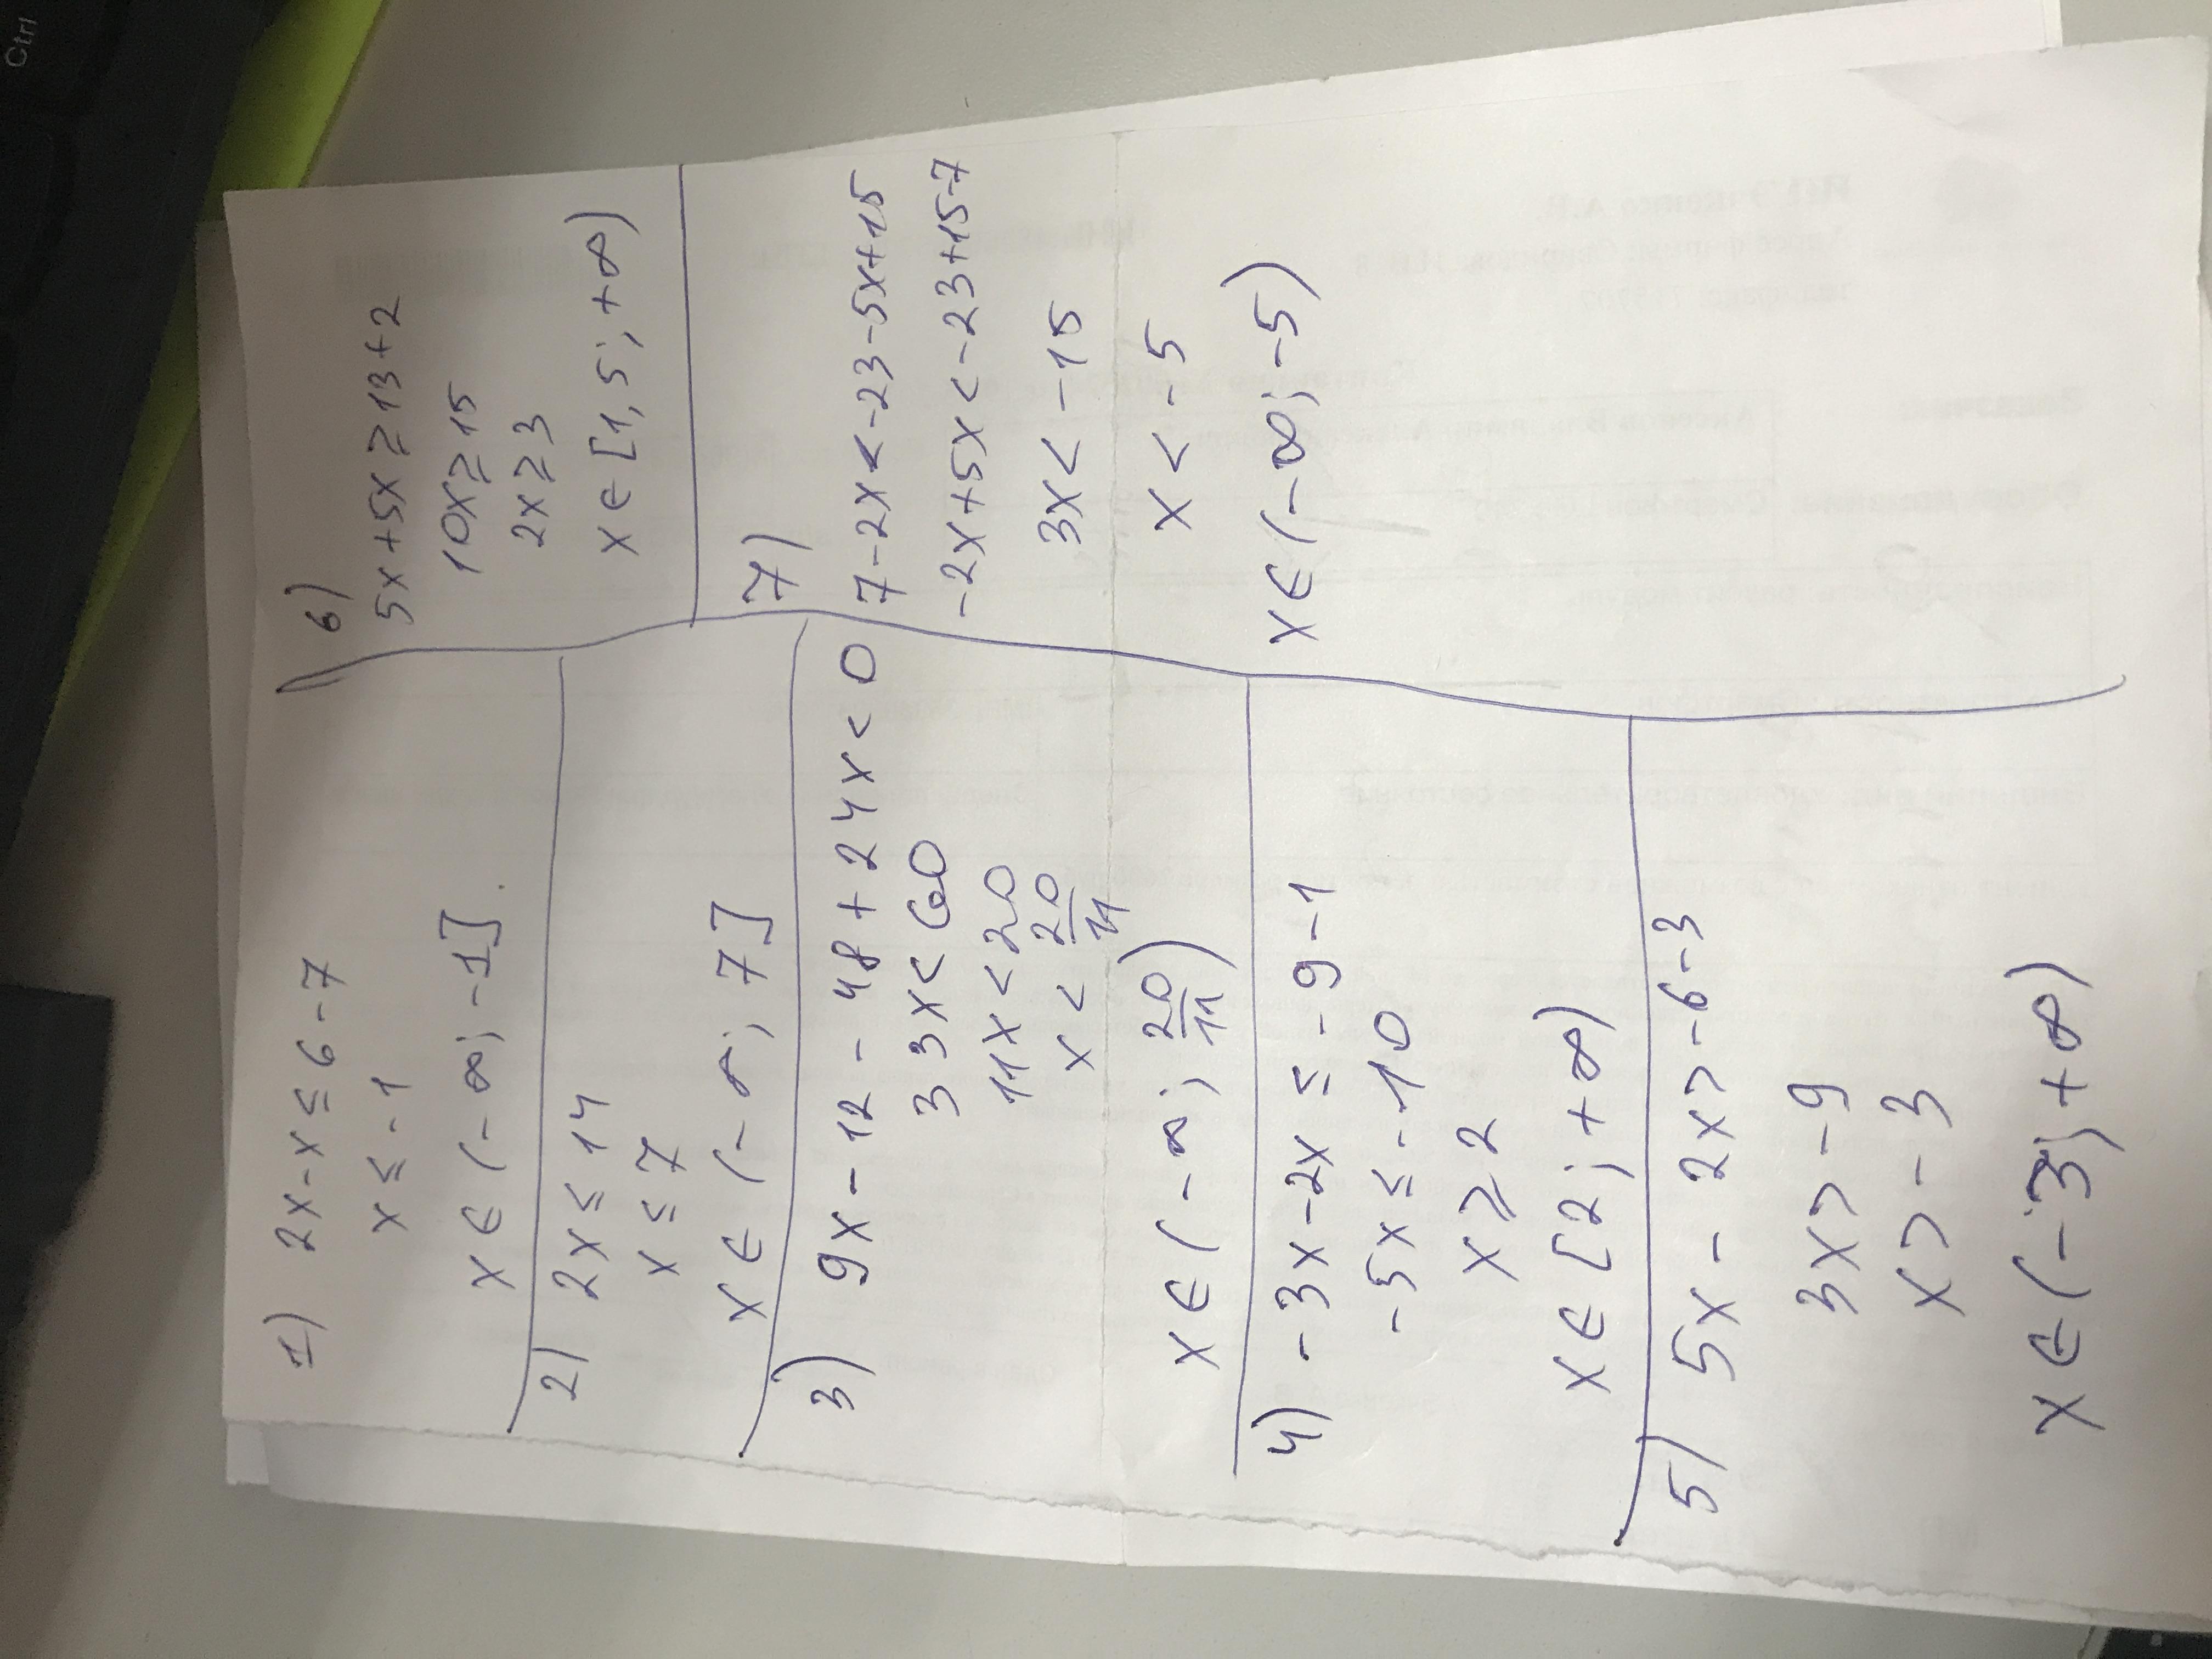 1) 2x-x≤6-7
x≤-1
x∈(-∞;-1].
2) 2x≤14
x≤7
x∈(-∞;7]
3) 9x-12-48+24x<0
33x<60
11x<20
x<20/11
x∈(-∞;20/11)
4) -3x-2x≤-9-1
-5x≤-10
x≥2
x∈[2;+∞)
5) 5x-2x>-6-3
3x>-9
x>-3
x∈(-3;+∞)
6)
5x+5x≥13+2
10x≥15
2x≥3
x∈[1,5;+∞)
7)
7-2x<-23-5x+15
-2x+5x<-23+15-7
3x<-15
x<-5
x∈(-∞;-5)
Ctrl